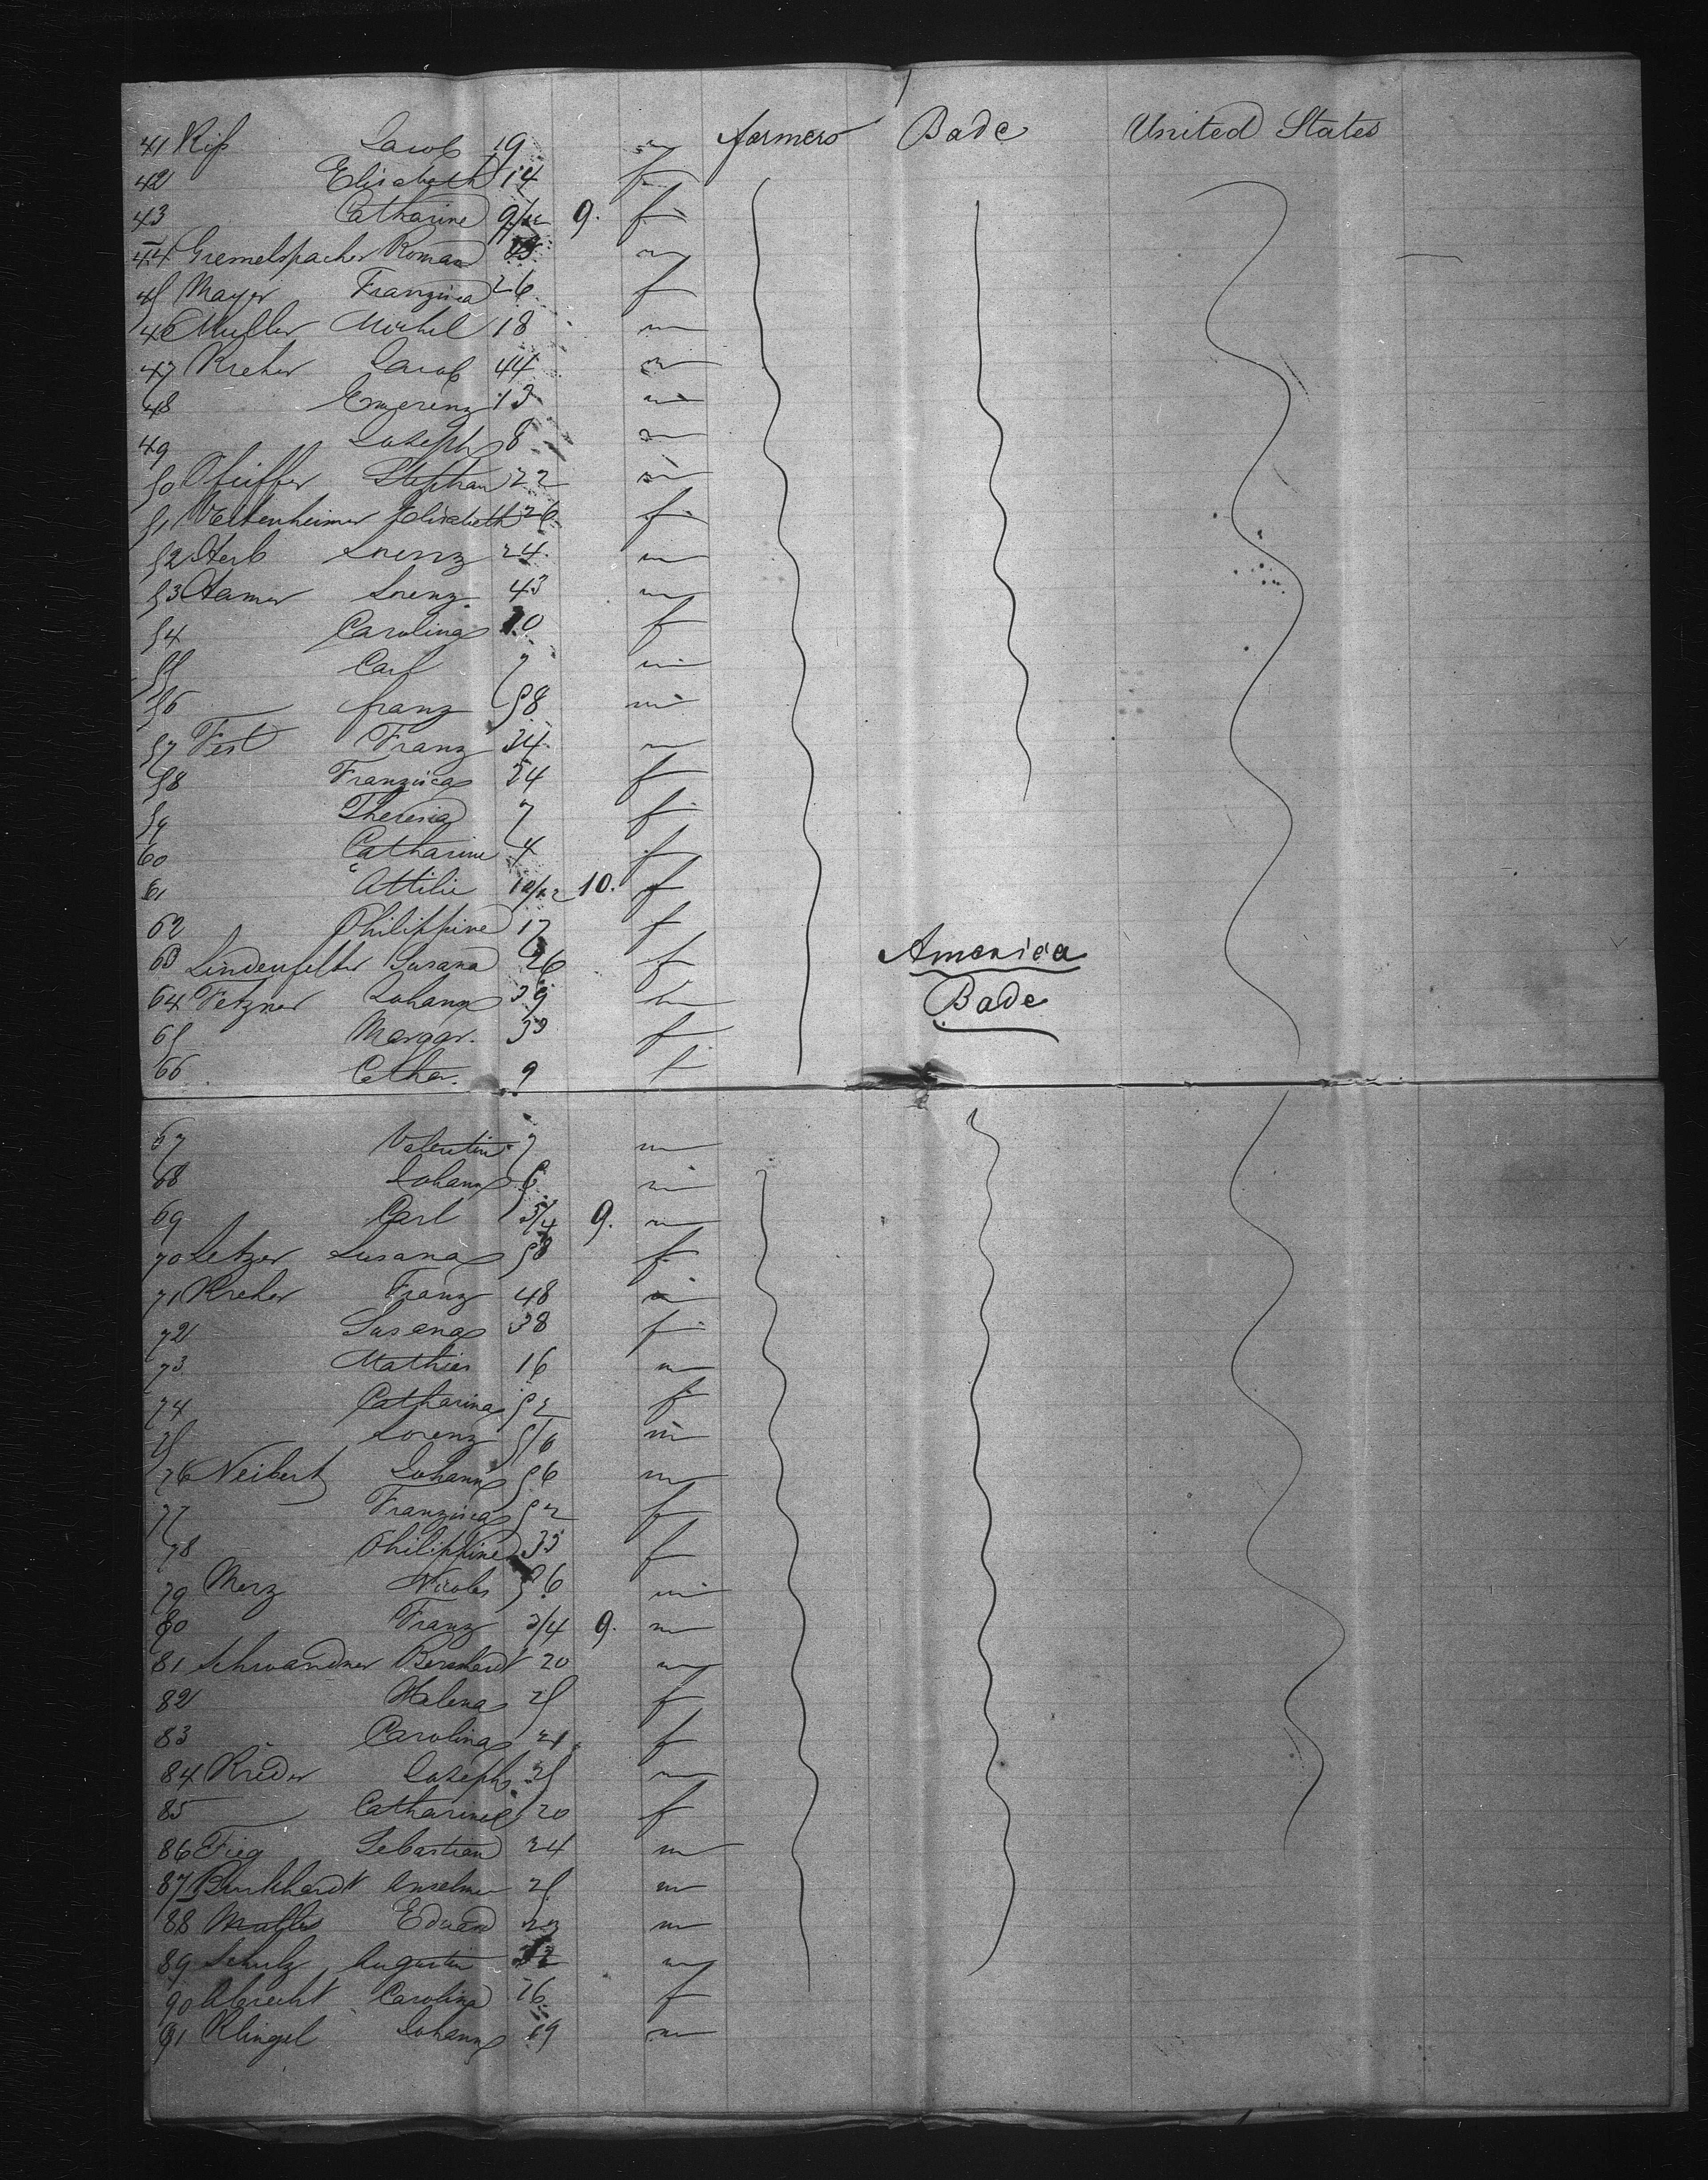 41 Kiß Jacob 19 m farmers Bade United States
42 Elisabeth 14 f
43 Catharine 9/12 9. f
44 Gremelspacher Roman m
45 Mayer Franzisca 26 f
46 Muller Michel 18 m
47 Kreher Jacob 44 m
48 Emerenz 13 m
49 Joseph 8 m
50 Pfeiffer Stephan 22 m
51 Elisabeth 26 f
52 Herb Lorenz 24 m
53 Hamer Lorenz 43 m
54 Carolina 10 f
55 Carl 7 m
56 franz 58 m
57 Fest Franz 34 m
58 Franzisca 34 f
59 Theresia 7 f
60 Catharine 4 f
61 Attilie 10/12 10. f
62 Philippine 17 f
63 Lindenfelser Susana 26 f America
64 Fetzner Johann 39 m Bade
65 Margar. 33 f
66 Cathar. 9 f
67 Valentin 7 m
68 Johann 6 m
69 Carl 3/4 9. m
70 Letzer Susana 58 f
71 Kreher Franz 48 m
72 Susana 38 f
73 Mathias 16 m
74 Catharina 52 f
75 Lorenz 56 m
76 Neibert Johann 56 m
77 Franzisca 52 f
78 Philippine 33 f
79 Merz Nicolas 56 m
80 Franz 3/4 9. m
81 Schwandner Bernhard 20 m
82 Helena 25 f
83 Carolina 21 f
84 Krieder Joseph 25 m
85 Catharine 20 f
86 Fieg Sebastian 24 m
87 Burkhardt Anselm 25 m
88 Eduard 23 m
89 Schulz Augustin 32 m
90 Albrecht Carolina 26 f
91 Klingel Johann 19 m